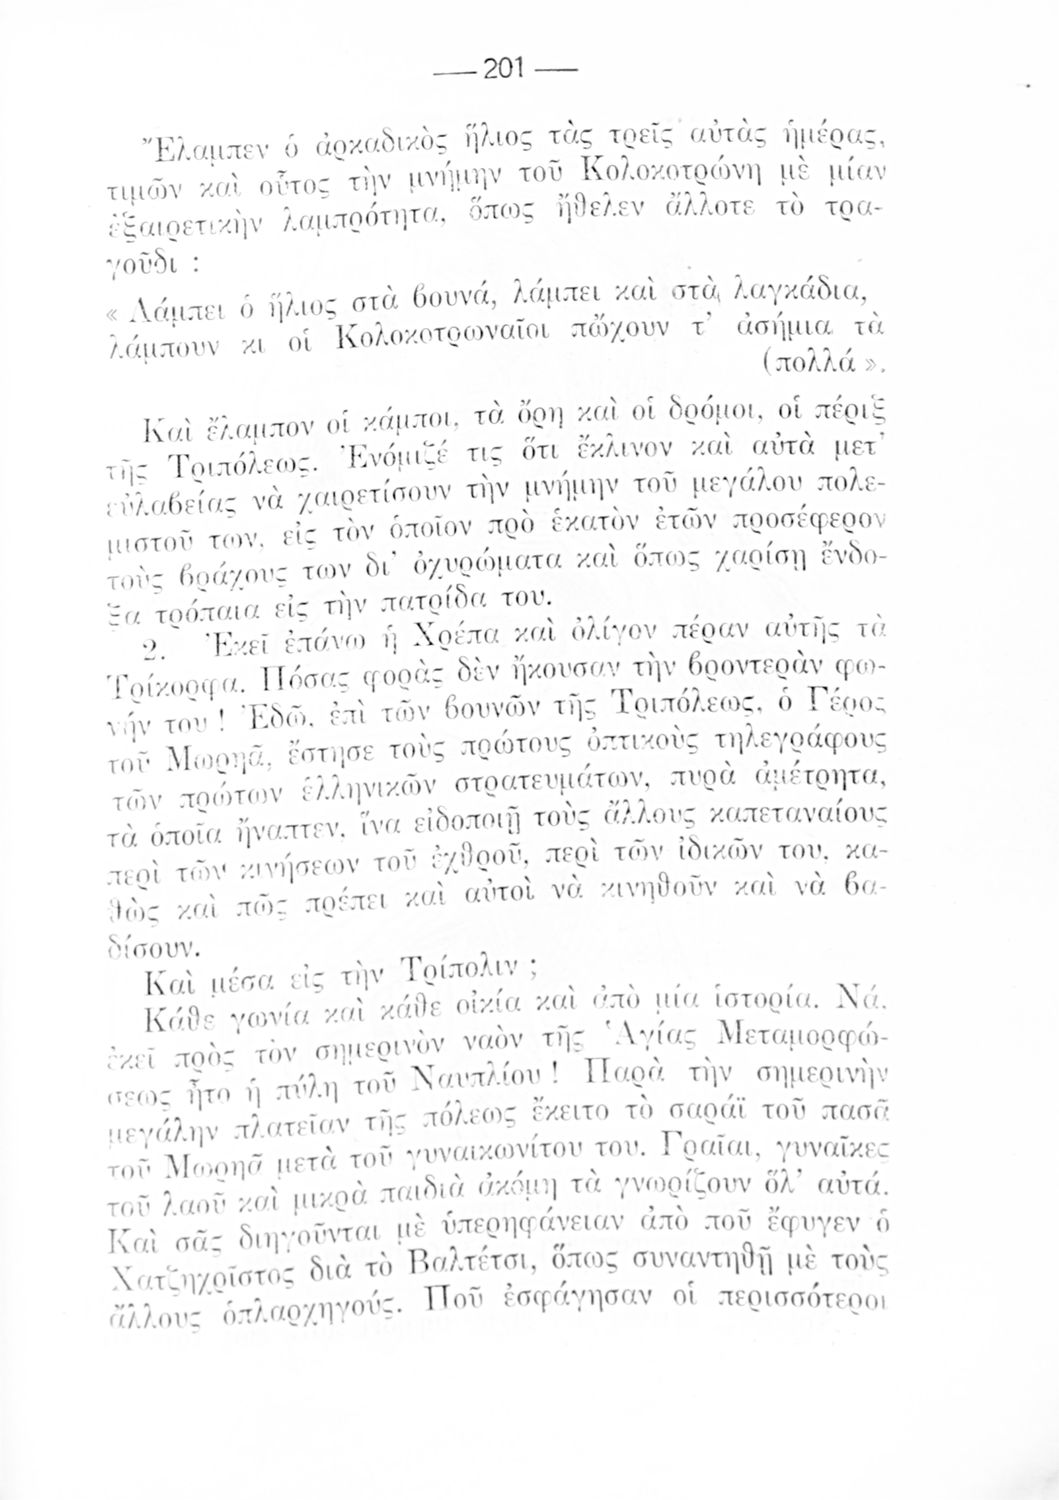 — 201 —
Ἔλαμπεν ὁ ἀρκαδικὸς ἥλιος τὰς τρεῖς αὐτὰς ἡμέρας,
τιμῶν καὶ οὗτος τὴν μνήμην τοῦ Κολοκοτρώνη μὲ μίαν
ἐξαιρετικὴν λαμπρότητα, ὅπως ἤθελεν ἄλλοτε τὸ τρα-
γοῦδι :
« Λάμπει ὁ ἥλιος στὰ βουνά, λάμπει καὶ στὰ λαγκάδια,
λάμπουν κι οἱ Κολοκοτρωναῖοι πὤχουν τ' ἀσήμια τὰ
(πολλά ».
Καὶ ἔλαμπον οἱ κάμποι, τὰ ὄρη καὶ οἱ δρόμοι, οἱ πέριξ
τῆς Τριπόλεως. Ἐνόμιζέ τις ὅτι ἔκλινον καὶ αὐτὰ μετ'
εὐλαβείας νὰ χαιρετίσουν τὴν μνήμην τοῦ μεγάλου πολε-
μιστοῦ των, εἰς τὸν ὁποῖον πρὸ ἑκατὸν ἐτῶν προσέφερον
τοὺς βράχους των δι' ὀχυρώματα καὶ ὅπως χαρίσῃ ἔνδο-
ξα τρόπαια εἰς τὴν πατρίδα του.
2. Ἐκεῖ ἐπάνω ἡ Χρέπα καὶ ὀλίγον πέραν αὐτῆς τὰ
Τρίκορφα. Πόσας φορὰς δὲν ἤκουσαν τὴν βροντερὰν φω-
νήν του ! Ἐδῶ, ἐπὶ τῶν βουνῶν τῆς Τριπόλεως, ὁ Γέρος
τοῦ Μωρηᾶ, ἔστησε τοὺς πρώτους ὀπτικοὺς τηλεγράφους
τῶν πρώτων ἑλληνικῶν στρατευμάτων, πυρὰ ἀμέτρητα,
τὰ ὁποῖα ἤναπτεν, ἵνα εἰδοποιῇ τοὺς ἄλλους καπεταναίους
περὶ τῶν κινήσεων τοῦ ἐχθροῦ, περὶ τῶν ἰδικῶν του, κα-
θὼς καὶ πῶς πρέπει καὶ αὐτοὶ νὰ κινηθοῦν καὶ νὰ βα-
δίσουν.
Καὶ μέσα εἰς τὴν Τρίπολιν ;
Κάθε γωνία καὶ κάθε οἰκία καὶ ἀπὸ μία ἱστορία. Νά,
ἐκεῖ πρὸς τὸν σημερινὸν ναὸν τῆς Ἁγίας Μεταμορφώ-
σεως ἦτο ἡ πύλη τοῦ Ναυπλίου ! Παρὰ τὴν σημερινὴν
μεγάλην πλατεῖαν τῆς πόλεως ἔκειτο τὸ σαράϊ τοῦ πασᾶ
τοῦ Μωρηᾶ μετὰ τοῦ γυναικωνίτου του. Γραῖαι, γυναῖκες
τοῦ λαοῦ καὶ μικρὰ παιδιὰ ἀκόμη τὰ γνωρίζουν ὅλ' αὐτά.
Καὶ σᾶς διηγοῦνται μὲ ὑπερηφάνειαν ἀπὸ ποῦ ἔφυγεν ὁ
Χατζηχρῖστος διὰ τὸ Βαλτέτσι, ὅπως συναντηθῇ μὲ τοὺς
ἄλλους ὁπλαρχηγούς. Ποῦ ἐσφάγησαν οἱ περισσότεροι